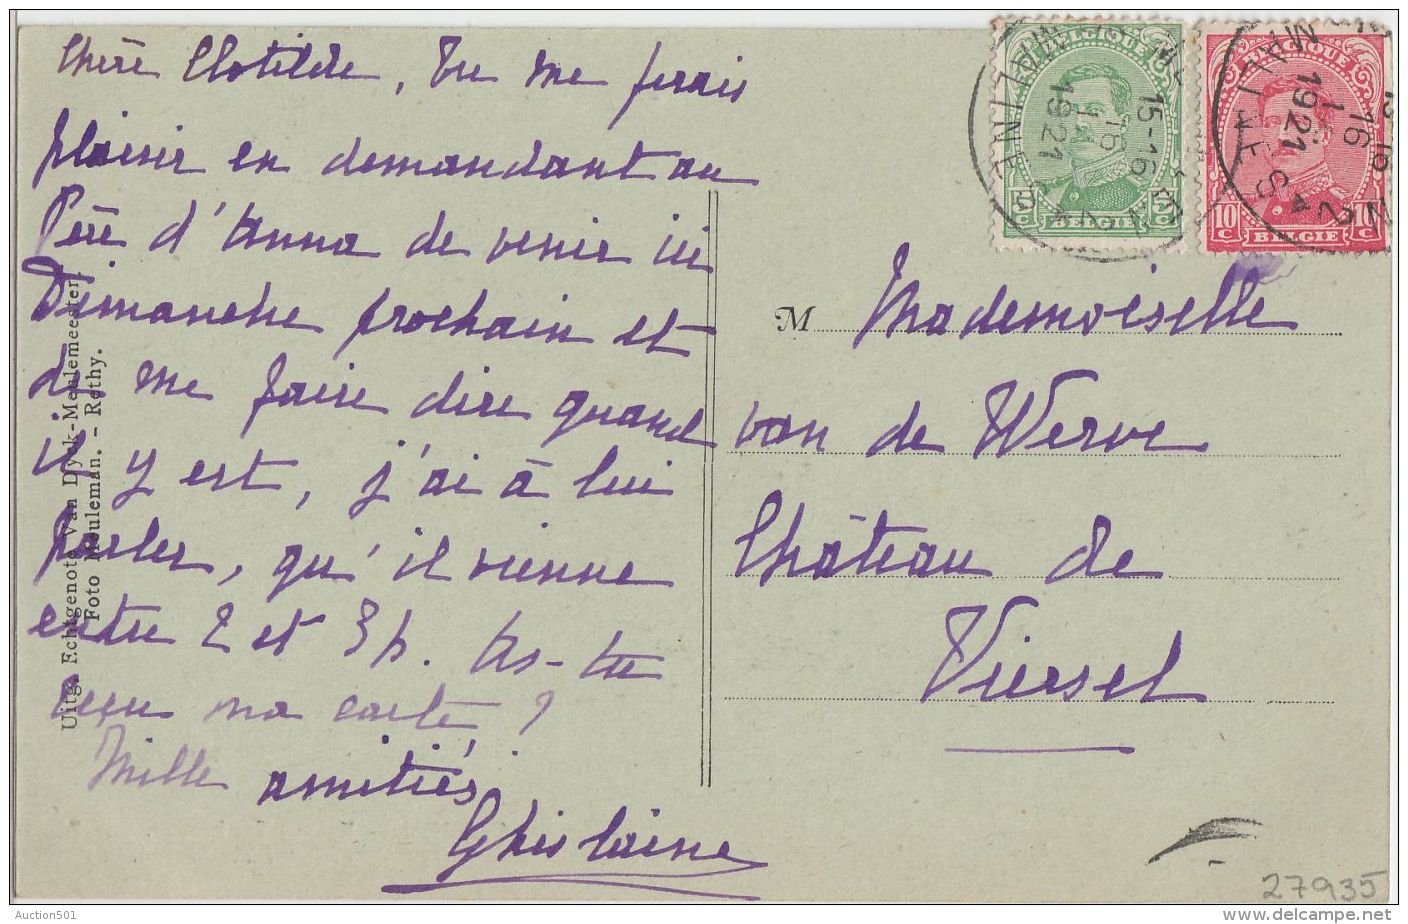 Chère Clotilde, tu me ferais
plaisir en demandant au
Père d'Anna de venir ici
Dimanche prochain et
de me faire dire quand
il y est, j'ai à lui
parler, qu'il vienne
entre 2 et 3 h. As-tu
reçu ma carte ?
Mille amitiés
Ghislaine
Uitg. Echtgenote Van Dyck-Meulemeester
Foto Meuleman. - Rethy.
BELGIQUE
5 C 5 C
BELGIE
BELGIQUE
10 C 10 C
BELGIE
MALINES
15-16
16
1
1921
MALINES
16
1
1921
M Mademoiselle
van de Werve
Château de
Viersel
27935
Auction501
delcampe.net